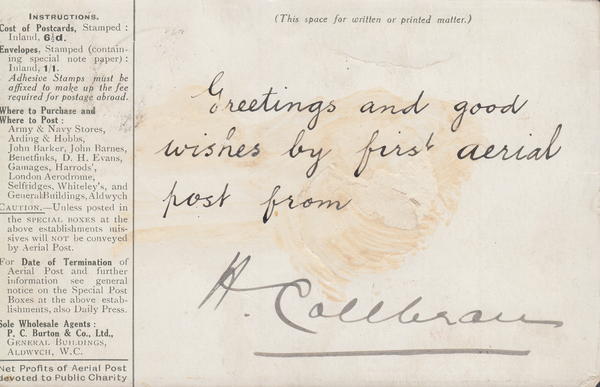 INSTRUCTIONS.
Cost of Postcards, Stamped :
Inland, 6½d.
Envelopes, Stamped (contain-
ing special note paper) :
Inland, 1/1.
Adhesive Stamps must be
affixed to make up the fee
required for postage abroad.
Where to Purchase and
Where to Post :
Army & Navy Stores,
Arding & Hobbs,
John Barker, John Barnes,
Benetfinks, D. H. Evans,
Gamages, Harrods',
London Aerodrome,
Selfridges, Whiteley's, and
General Buildings, Aldwych
CAUTION.—Unless posted in
the SPECIAL BOXES at the
above establishments mis-
sives will NOT be conveyed
by Aerial Post.
For Date of Termination of
Aerial Post and further
information see general
notice on the Special Post
Boxes at the above estab-
lishments, also Daily Press.
Sole Wholesale Agents :
P. C. Burton & Co., Ltd.,
GENERAL BUILDINGS,
ALDWYCH, W.C.
Net Profits of Aerial Post
devoted to Public Charity
(This space for written or printed matter.)
Greetings and good
wishes by first aerial
post from
H. Collbran